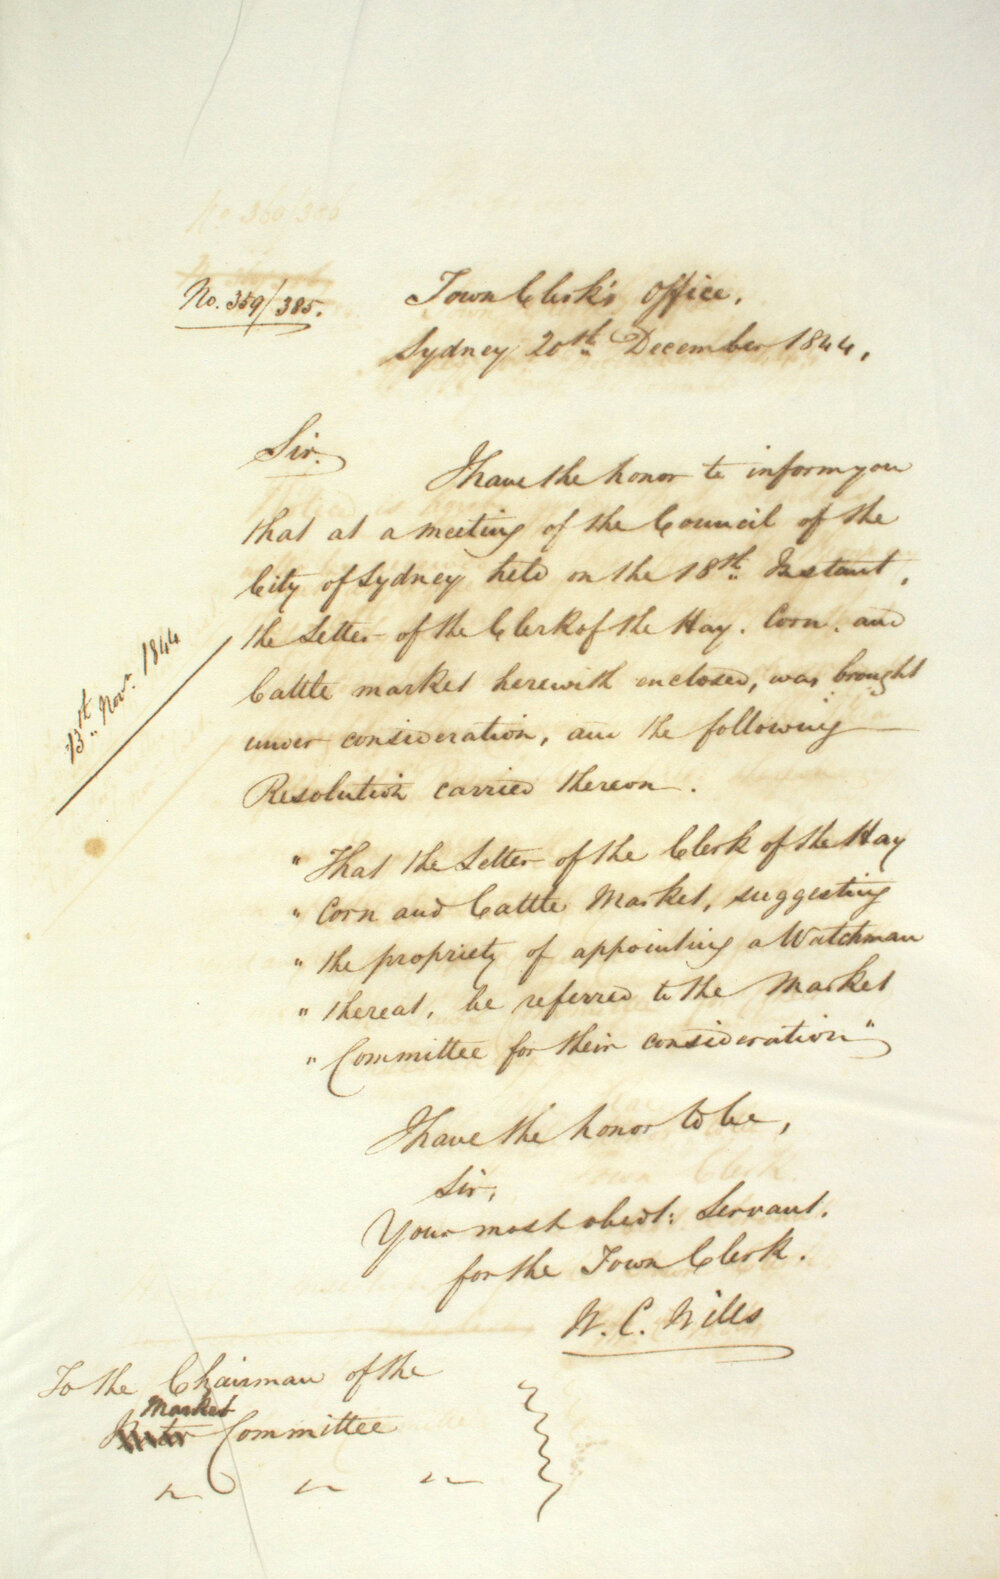 No. 359/385.
Town Clerk's Office,
Sydney 20th December 1844,
Sir.
I have the honor to inform you
that at a meeting of the Council of the
City of Sydney held on the 18th Instant,
the Letter of the Clerk of the Hay. Corn. and
13th Novr. 1844
Cattle market herewith enclosed, was brought
under consideration, and the following
Resolution carried thereon.
"That the Letter of the Clerk of the Hay
"Corn and Cattle Market, suggesting
"the propriety of appointing a Watchman
"thereat, be referred to the Market
"Committee for their consideration"
I have the honor to be,
Sir,
Your most obedt: Servant.
for the Town Clerk.
W. C. Wills
To the Chairman of the
Market
Committee